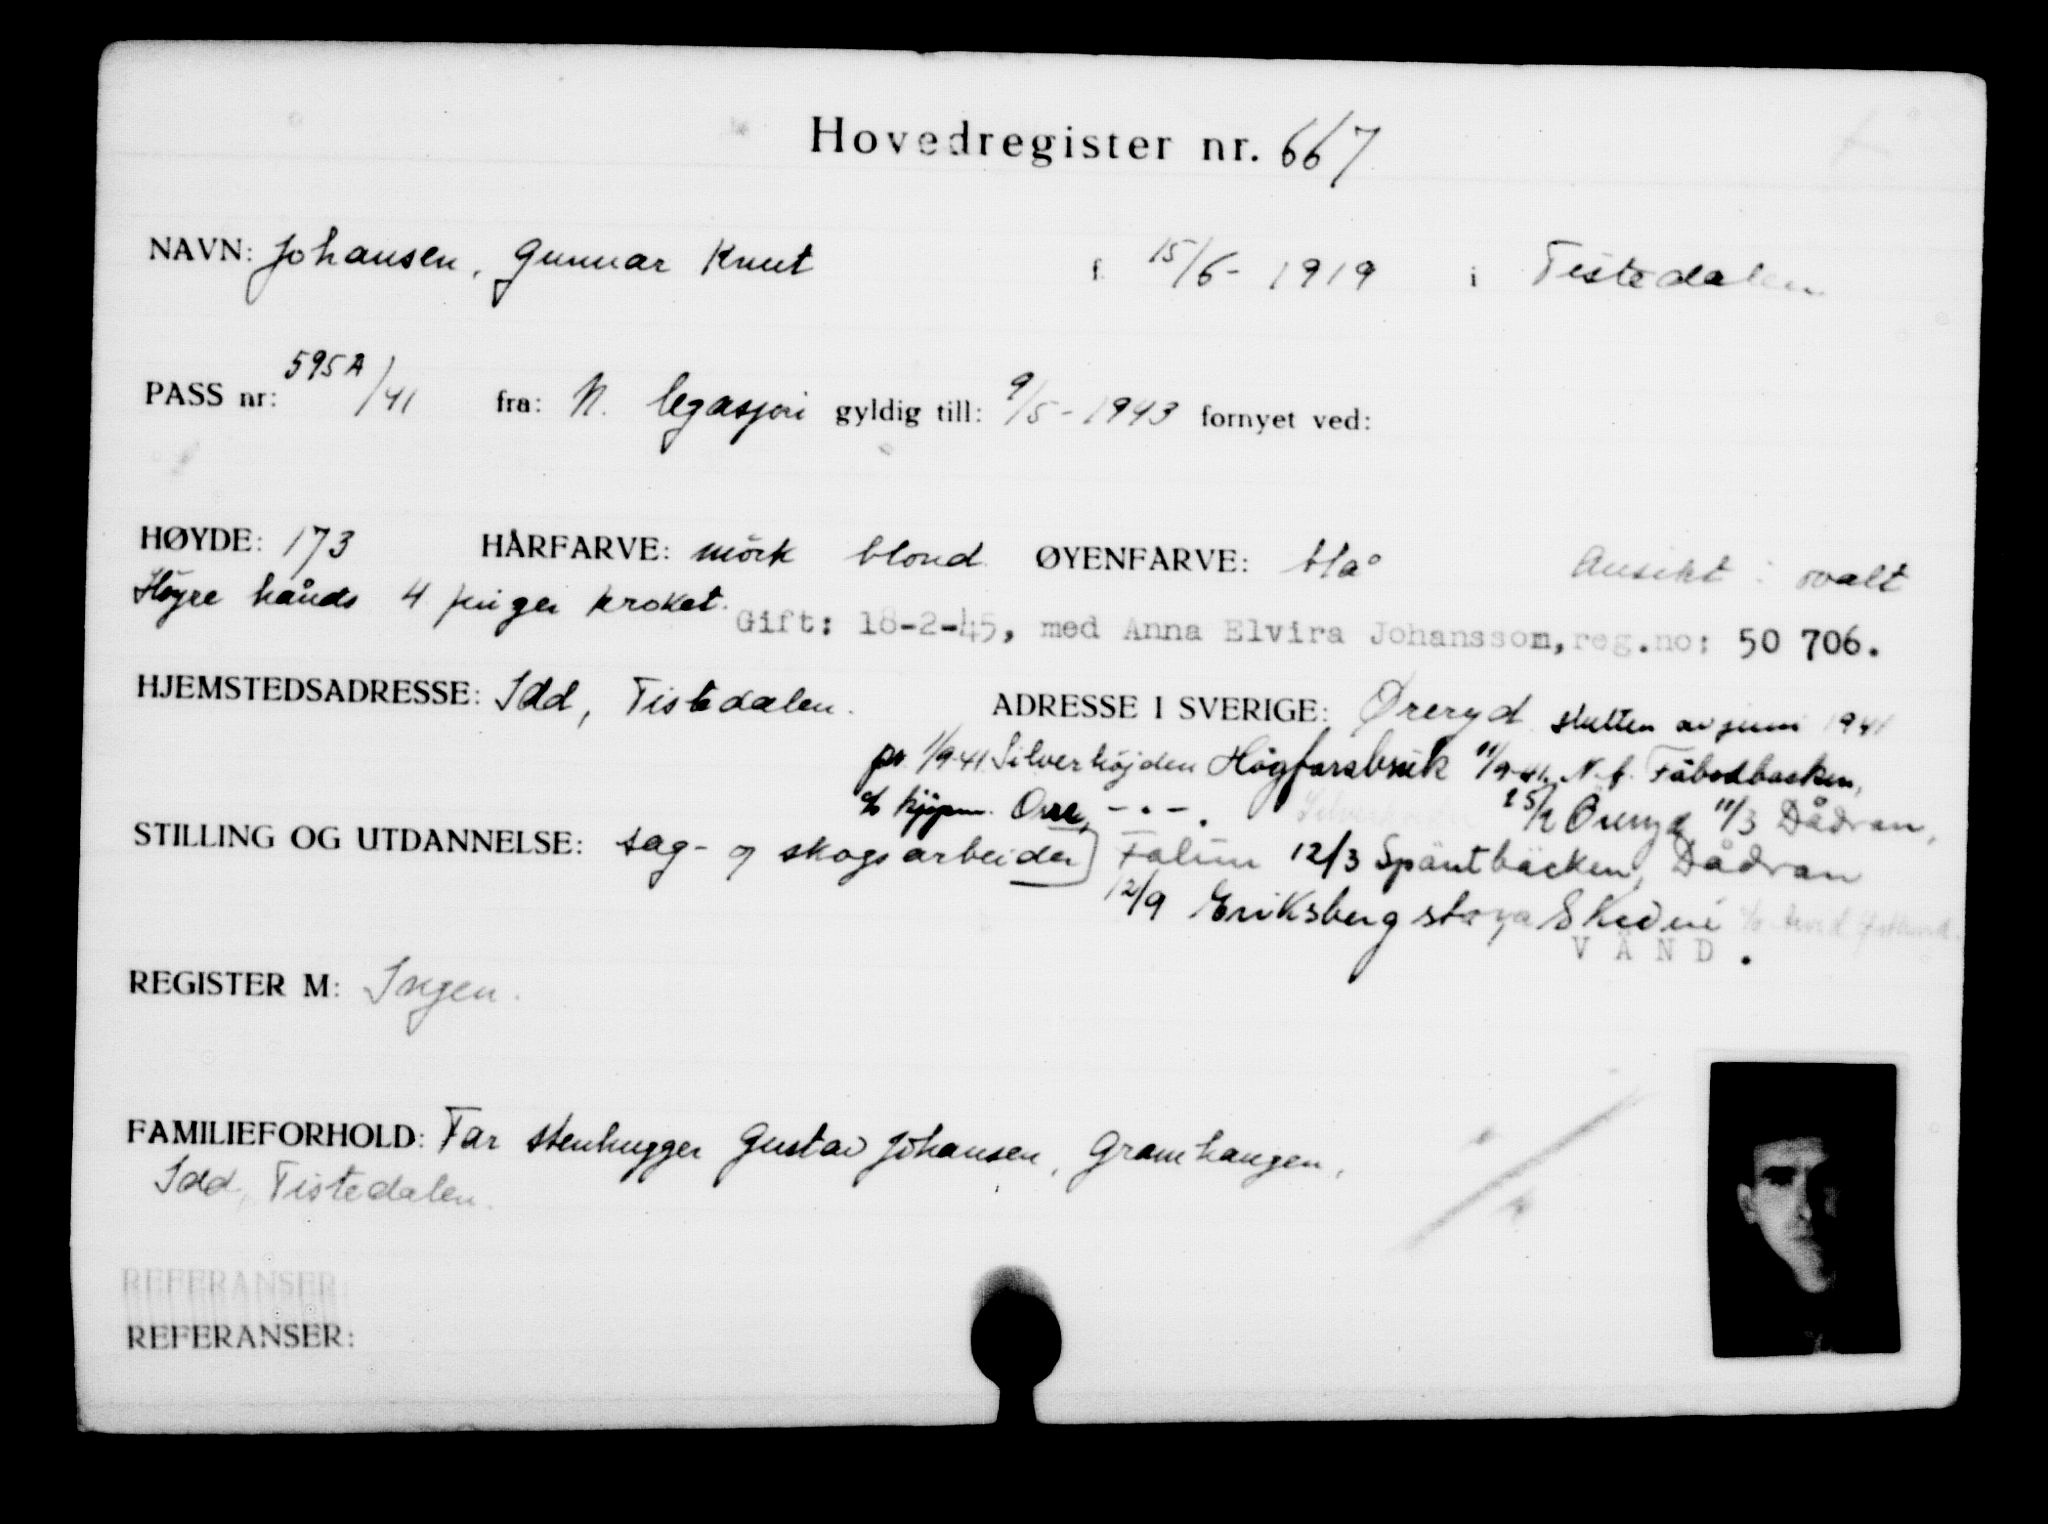 Hovedregister nr. 667
NAVN: Johansen, Gunnar Knut f. 15/6-1919 i Tistedalen
PASS nr: 595A/41 fra: N. legasjon gyldig till: 9/5-1943 fornyet ved:
HØYDE: 173 HÅRFARVE: mörk blond. ØYENFARVE: blå Ansikt: ovalt
Høyre hånds 4 finger kroket.
Gift: 18-2-45, med Anna Elvira Johansson, reg.no: 50 706.
HJEMSTEDSADRESSE: Idd, Tistedalen. ADRESSE I SVERIGE: Øreryd slutten av juni 1941
pr. 1/9-41 Silverhöjden Högforsbruk 11/9-41 N. f. Fäbodbacken,
c/o kjøpm. Orre, -"-. 25/2 Öreryd 11/3 Dådran,
STILLING OG UTDANNELSE: sag- og skogsarbeider Falun 12/3 Späntbäcken, Dådran
12/9 Eriksberg stoga Skedvi c/o
VÄND.
REGISTER M: Ingen.
FAMILIEFORHOLD: Far stenhugger Gustav Johansen, Gramhaugen,
Idd, Tistedalen.
REFERANSER:
REFERANSER: